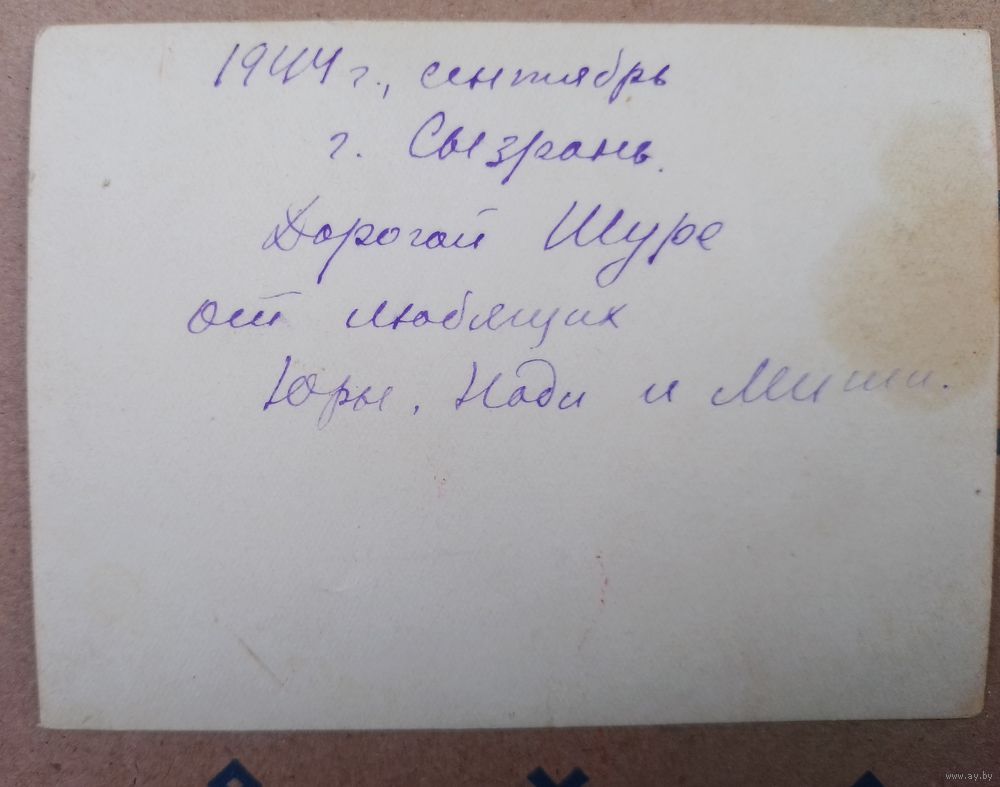 1944 г., сентябрь
г. Сызрань.
Дорогой Шуре
от любящих
Юры, Нади и Миши.
www.ay.by